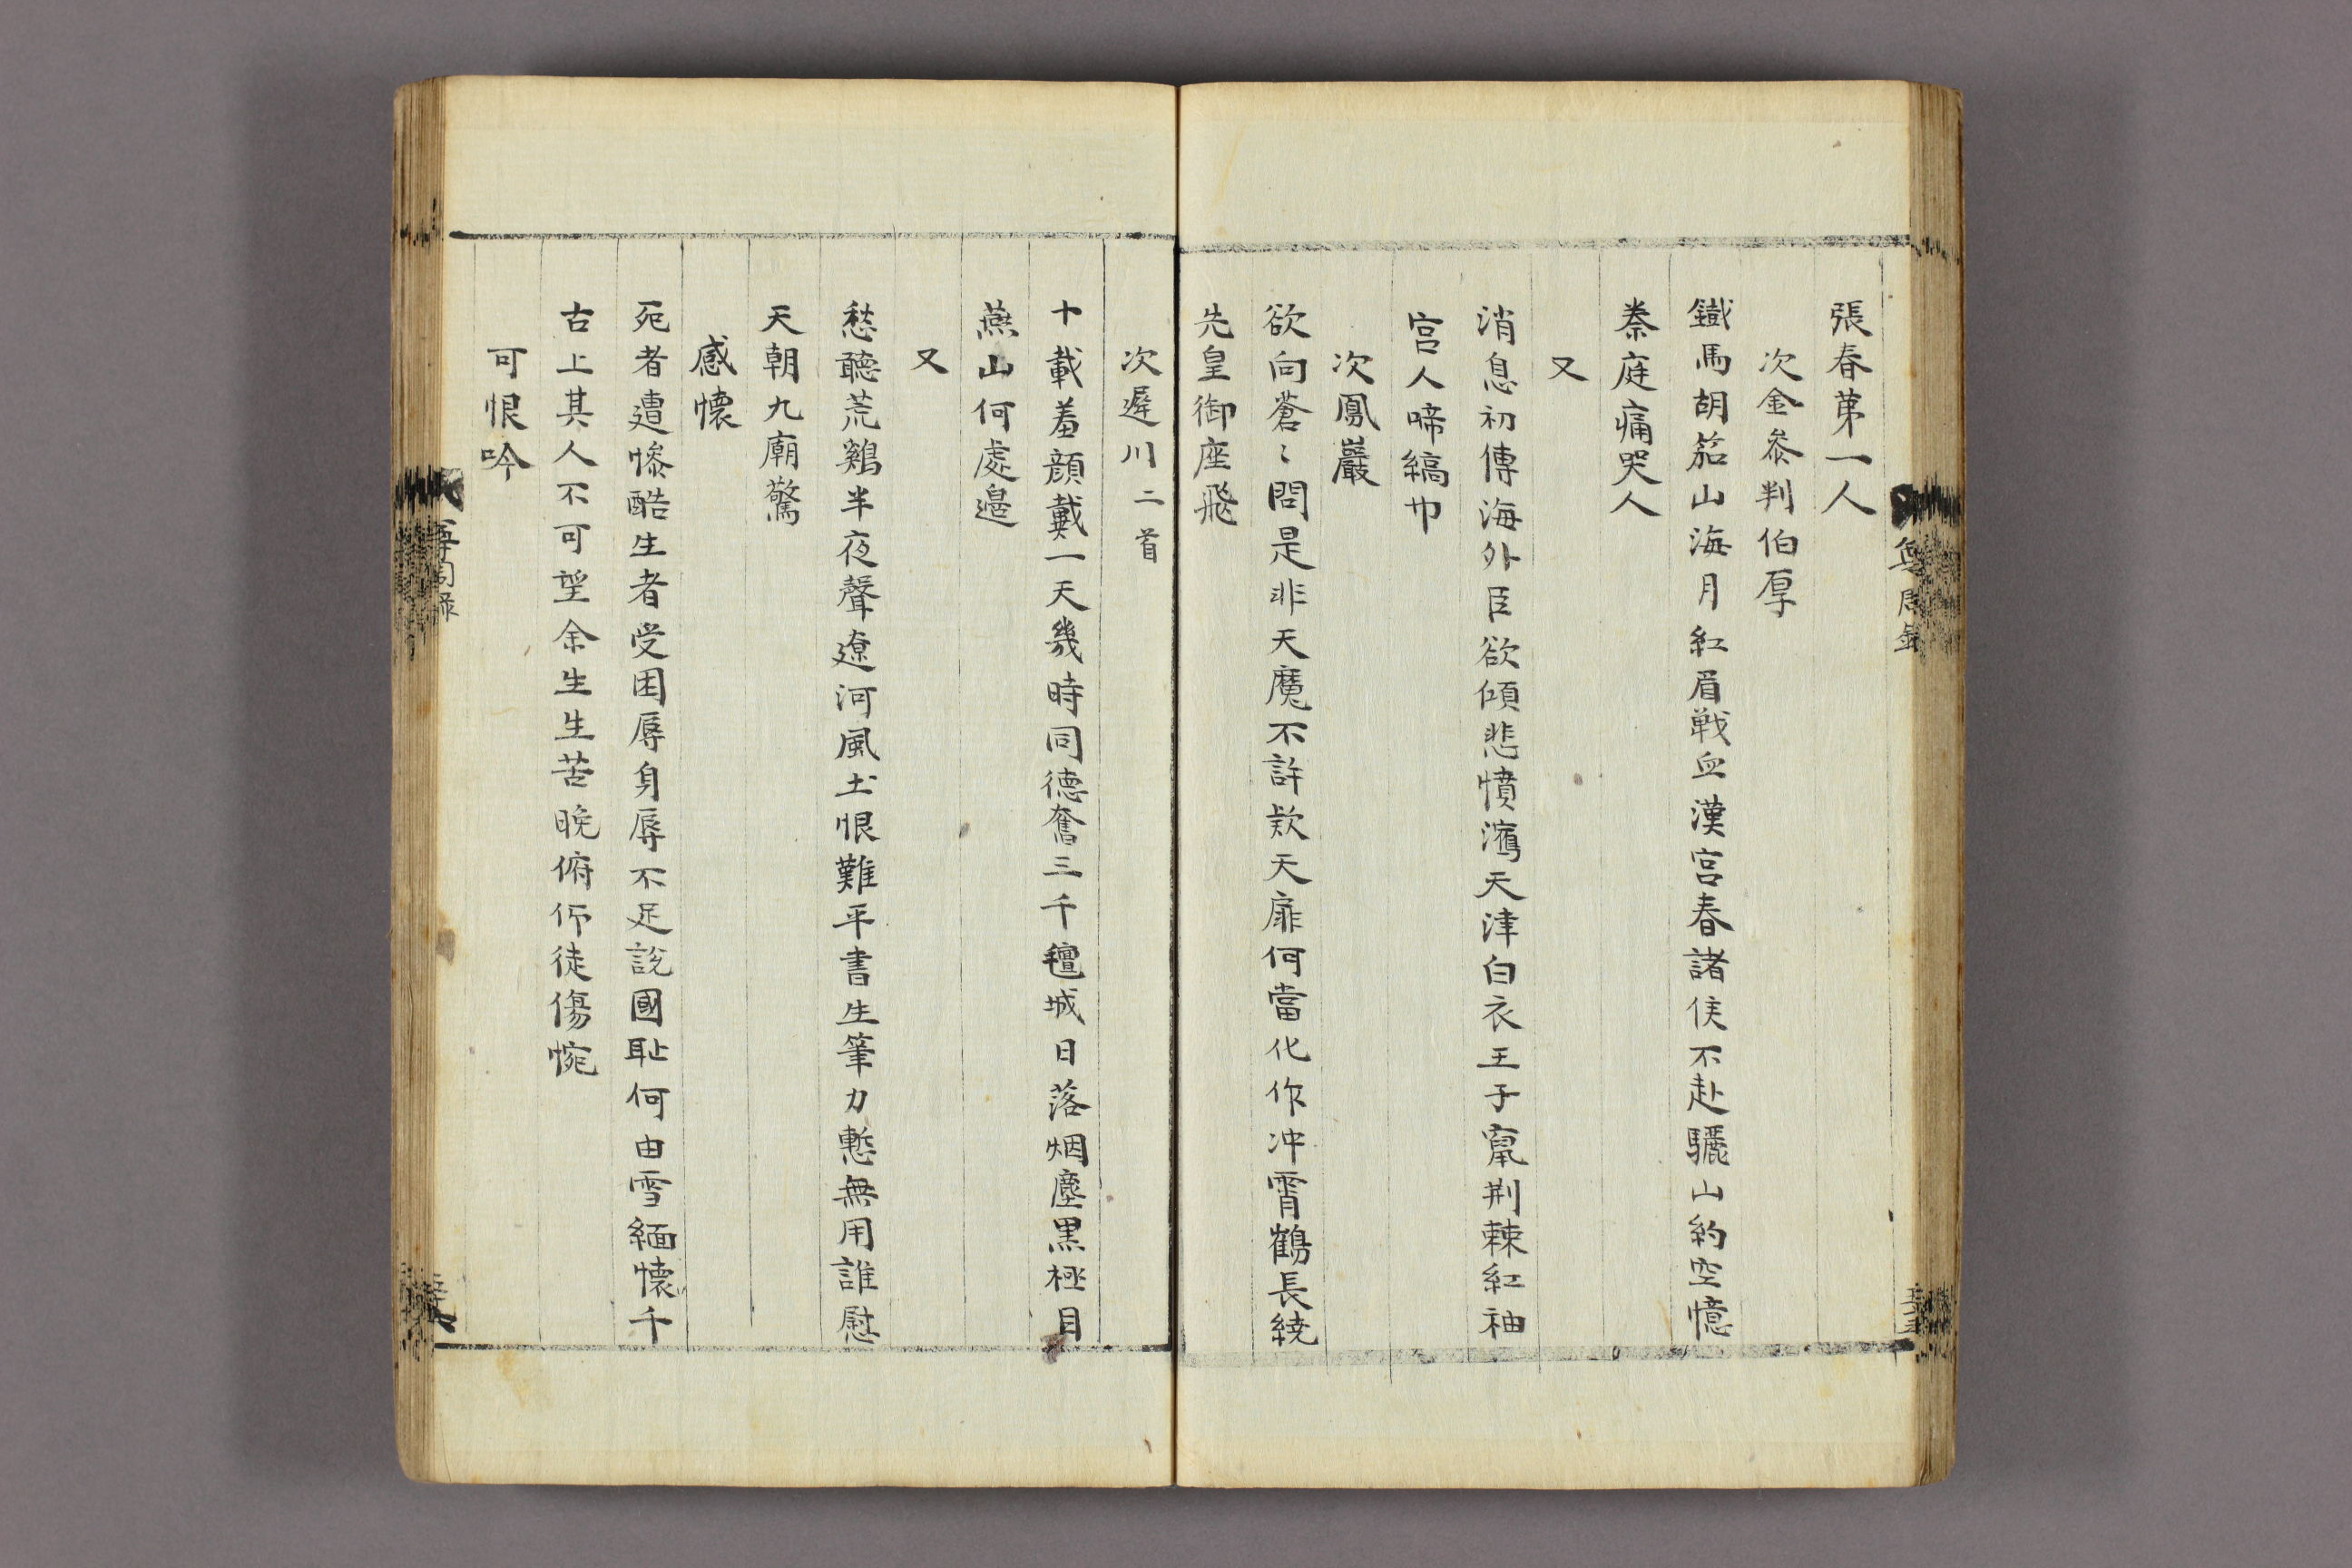 張春第一人
次金叅判伯厚
鐵馬胡笳山海月紅眉戰血漢宮春諸侯不赴驪山約空憶
秦庭痛哭人
又
消息初傳海外臣欲傾悲憤瀉天津白衣王子竄荆棘紅袖
宮人啼縞巾
次鳳巖
欲向蒼〻問是非天魔不許欵天扉何當化作冲霄鶴長繞
先皇御座飛
次遲川二首
十載羞顔戴一天幾時同德奮三千氊城日落烟塵黑極目
燕山何處邉
又
愁聽荒鷄半夜聲遼河風土恨難平書生筆力慙無用誰慰
天朝九廟驚
感懷
死者遭慘酷生者受困辱身辱不足説國耻何由雪緬懷千
古上其人不可望余生生苦晚俯仰徒傷惋
可恨吟